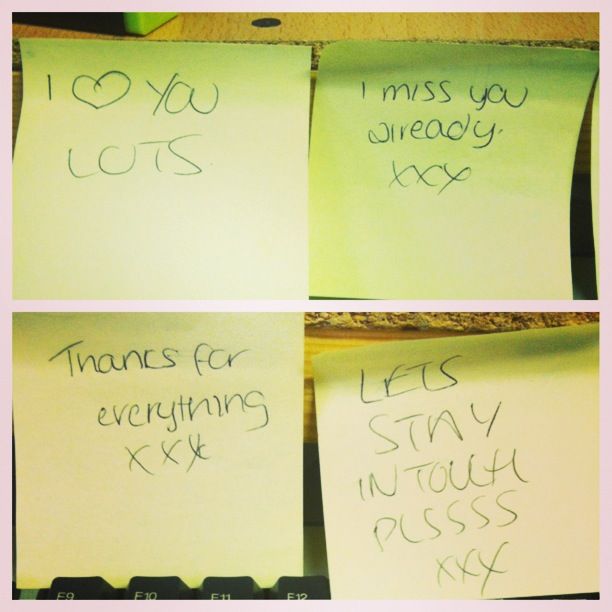 I ♡ YOU
LOTS.
I miss you
already.
xxx
Thanks for
everything
xxx
LETS
STAY
IN TOUCH
PLSSSS
xxx
F9 F10 F11 F12